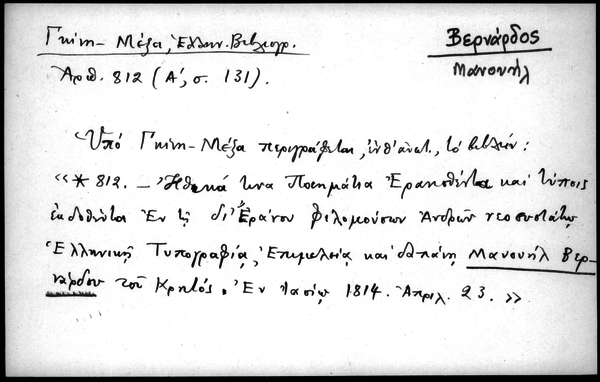 Γκίνη - Μέξα, Ἑλλην. Βιβλιογρ.
Βερνάρδος
Μανουήλ
Ἀριθ. 812 (Α', σ. 131).
Ὑπό Γκίνη - Μέξα περιγράφεται, τό βιβλίον:
«* 812. - Ἠθικά τινα Ποιημάτια Ἐρανισθέντα καί τύποις
ἐκδοθέντα Ἐν τῇ δι' Ἐράνου φιλομούσων Ἀνδρῶν νεοσυστάτῳ
Ἑλληνικῇ Τυπογραφίᾳ, Ἐπιμελείᾳ καί δαπάνῃ Μανουήλ Βερ-
νάρδου τοῦ Κρητός. Ἐν Ἰασίῳ 1814. Ἀπριλ. 23. »